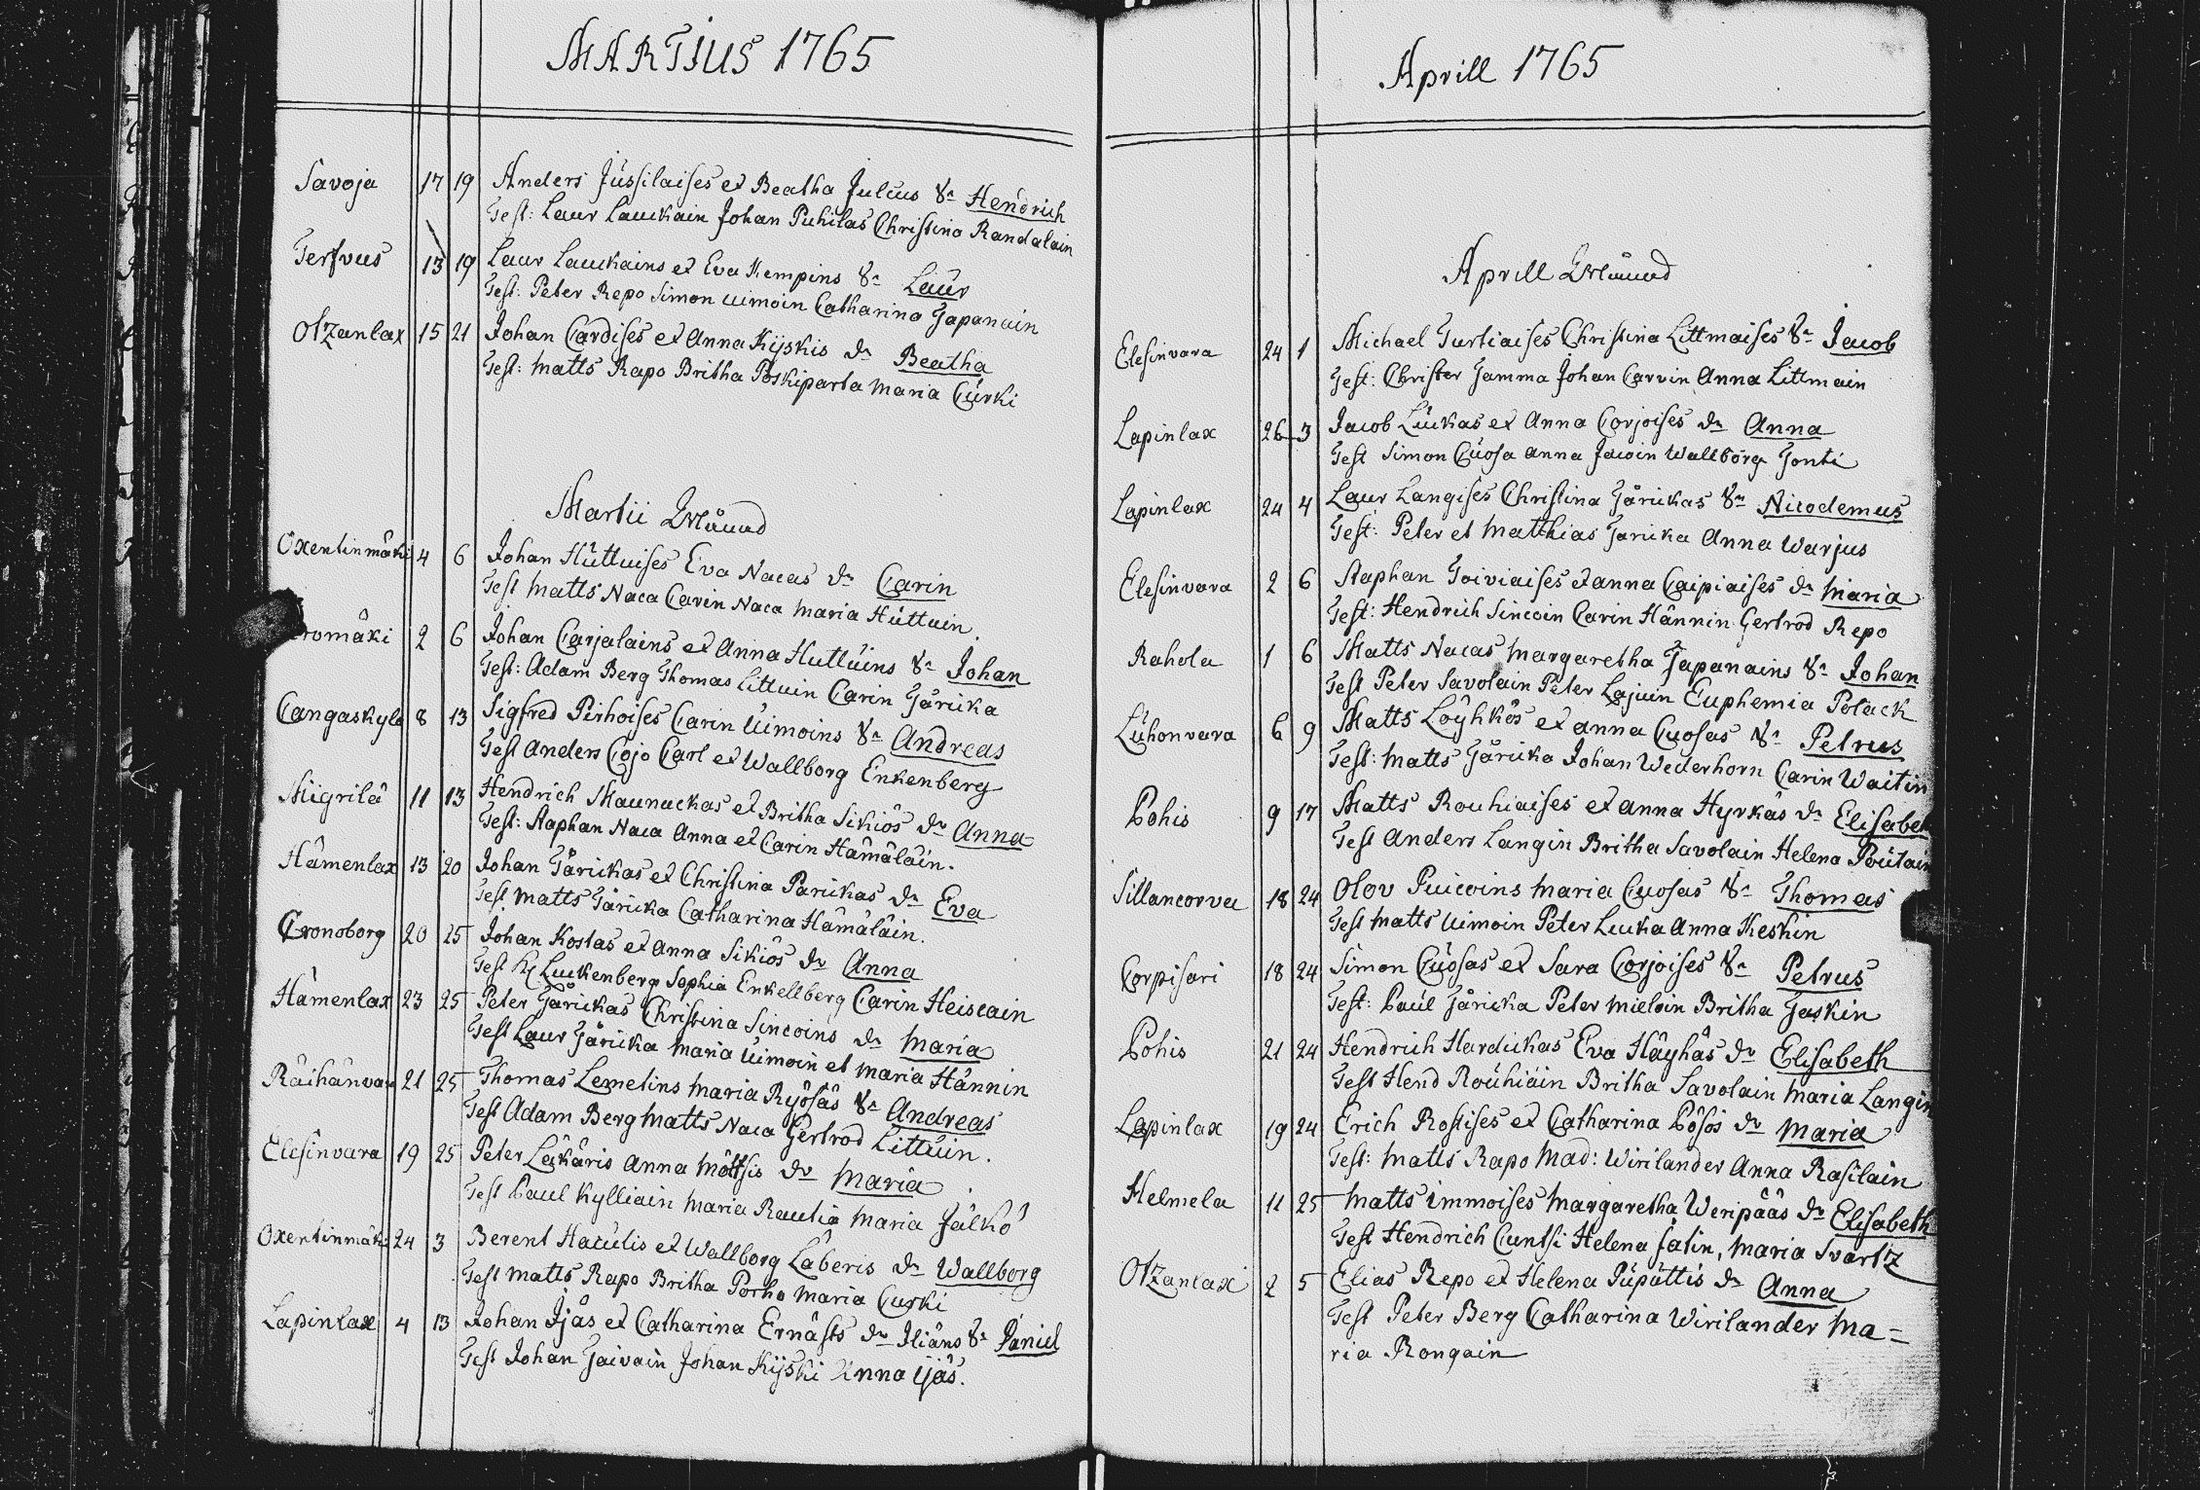 MARTIUS 1765
Savoja 17 19 Anders Jussilaises et Beatha Julcus Sn Hendrich
Test: Laur Lauckain Johan Puhilas Christina Randalain
Terfvus 13 19 Laur Lauckains et Eva Kempins Sn Laur
Test: Peter Repo Simon Uimoin Catharina Japanain
Otzanlax 15 21 Johan Cardises et Anna Kijskis dr Beatha
Test: Matts Rapo Britha Poskiparta Maria Curki
Martii
Oxentinmäki 4 6 Johan Hüttuises Eva Nacas dr Carin
Test Matts Naca Carin Naca Maria Hüttuin.
romäki 2 6 Johan Carjalains et Anna Huttuins Sn Johan
Test: Adam Berg Thomas Littuin Carin Järicka
Cangaskylä 8 13 Sigfred Pirhoises Carin Uimoins Sn Andreas
Test Anders Cojo Carl et Wallborg Enkenberg
Migrilä 11 13 Hendrich Maunuckas et Britha Sikiös dr Anna
Test: Staphan Naca Anna et Carin Hämäläin.
Hämenlax 13 20 Johan Järickas et Christina Parickas dr Eva
Test Matts Järicka Catharina Hämäläin.
Cronoborg 20 25 Johan Kostas et Anna Sikiös dr Anna
Test Luckenberg Sophia Enkellberg Carin Heiscain
Hämenlax 23 25 Peter Järickas Christina Sincoins dr Maria
Test Laur Järicka Maria Uimoin et Maria Hännin
Räihänvara 21 25 Thomas Lemetins Maria Ryösäs Sn Andreas
Test Adam Berg Matts Naca Gertrod Littuin.
Elesinvara 19 25 Peter Läkäris Anna Möttsis dr Maria
Test Paul Kylliain Maria Rautia Maria Jälkö
Oxentinmäki 24 3 Berent Haculis et Wallborg Läberis dr Wallborg
Test Matts Rapo Britha Porho Maria Curki
Lapinlax 4 13 Johan Ijäs et Catharina Ernästs dr Iliäns Sn Daniel
Test Johan Jaivain Johan Kijski Anna Ijäs.
Aprill 1765
Aprill
Elesinvara 24 1 Michael Turtiaises Christina Littmaises Sn Jacob
Test: Christer Jamma Johan Carvin Anna Littmain
Lapinlax 26 3 Jacob Luckas et Anna Corjoises dr Anna
Test Simon Cuosa Anna Jacoin Wallborg Tonti
Lapinlax 24 4 Laur Langises Christina Järickas Sn Nicodemus
Test: Peter et Matthias Jaricka Anna Warjus
Elesinvara 2 6 Staphan Toiviaises et Anna Caipiaises dr Maria
Test: Hendrich Sincoin Carin Hännin Gertrod Repo
Rahola 1 6 Matts Nacas Margaretha Japanains Sn Johan
Test Peter Savolain Peter Lajuin Euphemia Polack
Luhonvara 6 9 Matts Löyhkös et Anna Cuosas Sn Petrus
Test: Matts Järicka Johan Wederhorn Carin Waitin
Pohis 9 17 Matts Rouhiaises et Anna Hyrkäs dr Elisabeth
Test Anders Langin Britha Savolain Helena Poutain
Sillancorva 18 24 Olov Puicoins Maria Cuosas Sn Thomas
Test Matts Uimoin Peter Lucka Anna Keskin
Corpisari 18 24 Simon Cuosas et Sara Corjoises Sn Petrus
Test: Paul Järicka Peter Mieloin Britha Jaskin
Pohis 21 24 Hendrich Hardickas Eva Häyhäs dr Elisabeth
Test Hend Rouhiäin Britha Savolain Maria Langin
Lapinlax 19 24 Erich Rostises et Catharina Pösös dr Maria
Test: Matts Rapo Mad: Wirilander Anna Rasilain
Helmela 11 25 Matts Immoises Margaretha Weripääs dr Elisabeth
Test Hendrich Cuntsi Helena Jatin, Maria Svartz
Otzanlax 2 5 Elias Repo et Helena Püpüttis dr Anna
Test Peter Berg Catharina Wirilander Ma=
ria Rongain